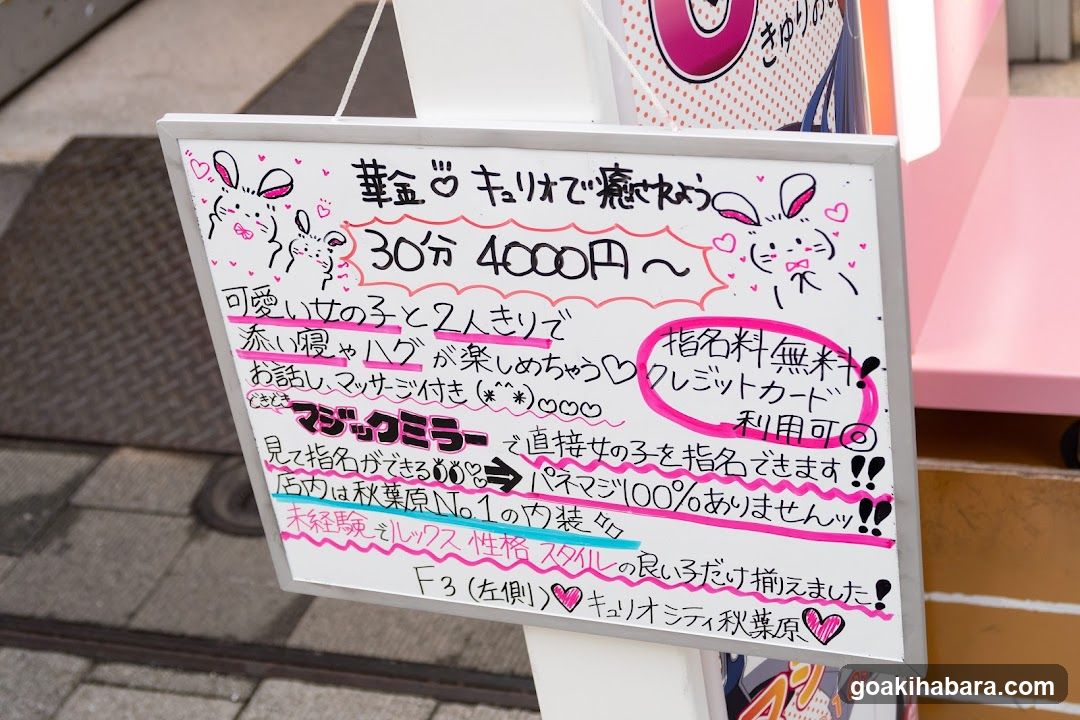 きゅりお
華金♡ キュリオで癒されよう
30分 4000円～
可愛い女の子と2人きりで
添い寝やハグが楽しめちゃう♡
お話し、マッサージ付き(*^^*)○○○
指名料無料!
クレジットカード
利用可◎
どきどき マジックミラーで直接女の子を指名できます!!
見て指名ができる♡➡パネマジ100%ありませんッ!!
店内は秋葉原No.1の内装
未経験でルックス 性格 スタイルの良い子だけ揃えました!
F3(左側)♥キュリオシティ秋葉原♥
goakihabara.com